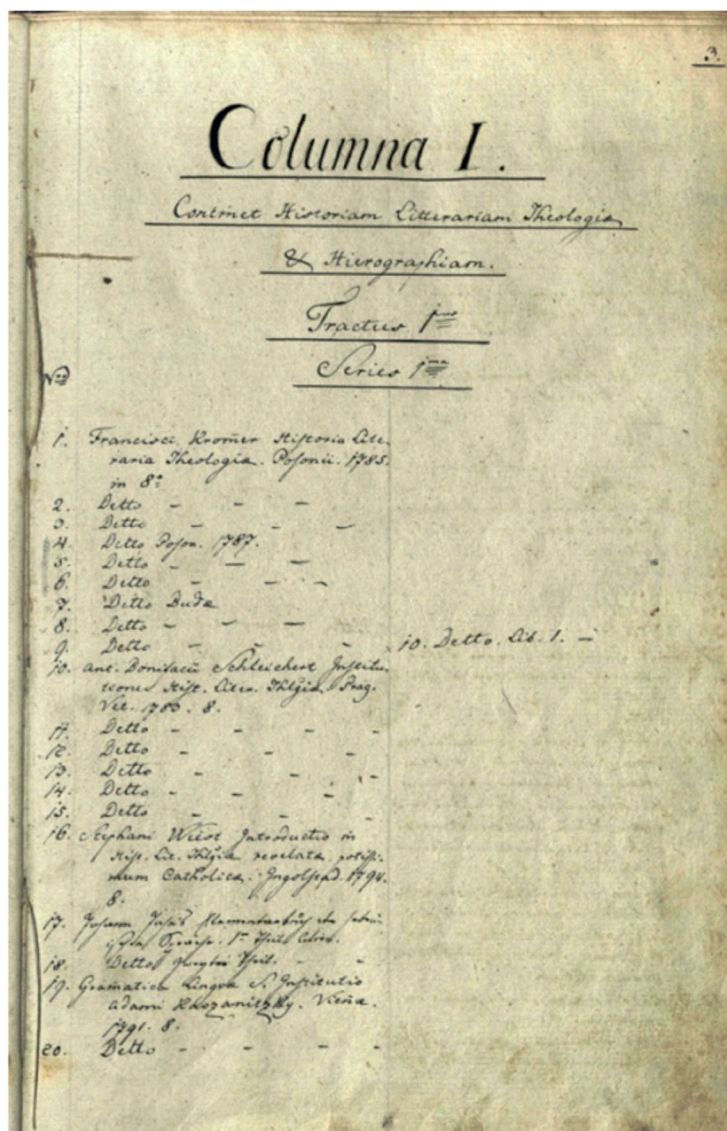 3.
Columna I.
Continet Historiam Litterariam Theologiæ
& Hierographiam.
Tractus 1mus
Series 1ma
Nro
1. Francisci Kromer Historia Lite-
raria Theologiæ. Posonii. 1785.
in 8o
2. Detto - - -
3. Detto - - -
4. Detto Poson. 1787.
5. Detto - - -
6. Detto - - -
7. Detto Budæ
8. Detto - - -
9. Detto - - -
10. Detto. Lit. 1. -
10. Ant. Bonifacii Schleichert Institu-
tiones Hist. Liter. Thlgiæ. Prag.
Vet. 8.
11. Detto - - - -
12. Detto - - -
13. Detto - - -
14. Detto - - -
15. Detto - - -
16. Stephani Wiest Introductio in
Hist. Lit. Thlgiæ revelatæ potissi-
mum Catholicæ. Ingolstad. 1794.
8.
17. Johann Elementarbuch der hebrä-
ischen Sprache. 1r Theil.
18. Detto Zweyter Theil. - -
19. Gramatica Linguæ S. Institutio
Adami. Vieñæ.
1791. 8.
20. Detto - - - -